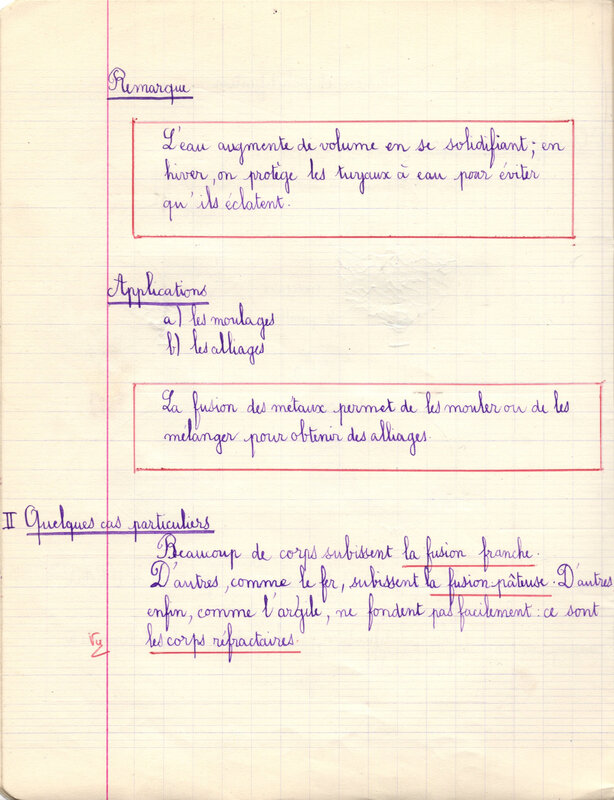 Remarque
L'eau augmente de volume en se solidifiant ; en
hiver, on protège les tuyaux à eau pour éviter
qu'ils éclatent.
Applications
a) les moulages
b) les alliages
La fusion des métaux permet de les mouler ou de les
mélanger pour obtenir des alliages.
II Quelques cas particuliers
Beaucoup de corps subissent la fusion franche.
D'autres, comme le fer, subissent la fusion pâteuse. D'autres
enfin, comme l'argile, ne fondent pas facilement : ce sont
Vu les corps réfractaires.